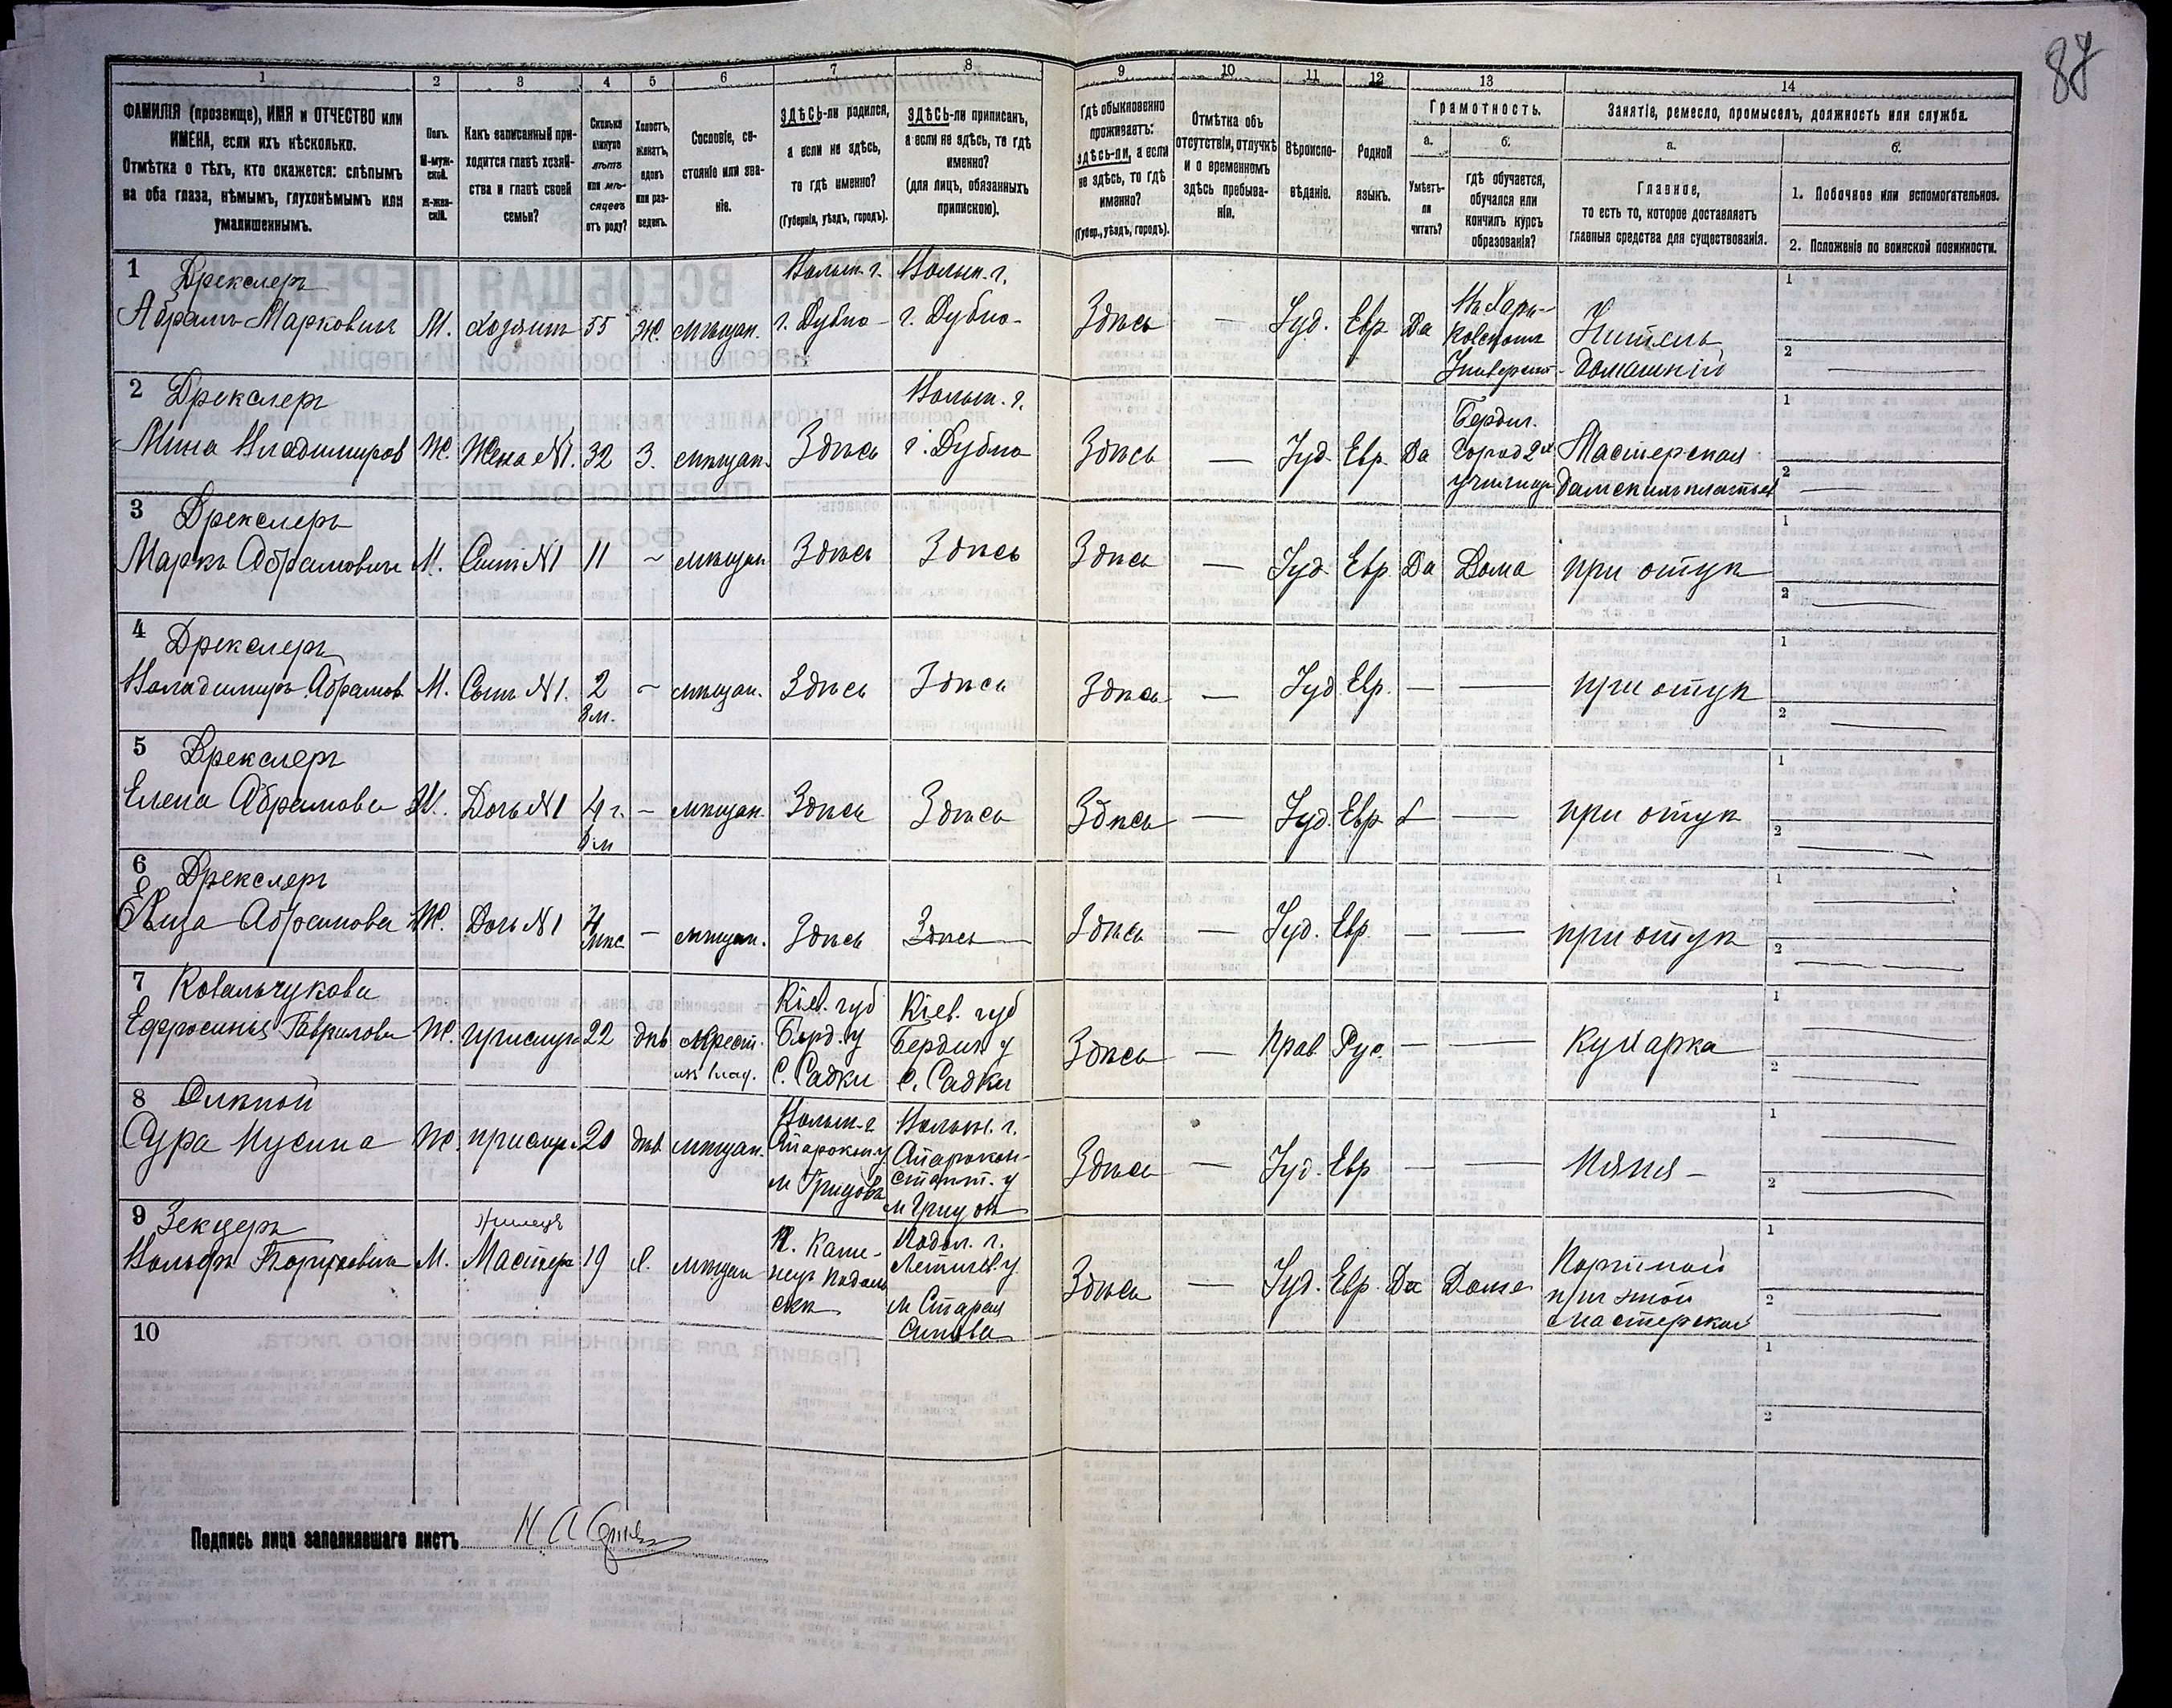 87
1 2 3 4 5 6 7 8 9 10 11 12 13 14
ФАМИЛІЯ (прозвище), ИМЯ и ОТЧЕСТВО или
ИМЕНА, если ихъ нѣсколько.
Отмѣтка о тѣхъ, кто окажется: слѣпымъ
на оба глаза, нѣмымъ, глухонѣмымъ или
умалишеннымъ.
Полъ.
М-муж-
ской.
Ж-жен-
скій.
Какъ записанный при-
ходится главѣ хозяй-
ства и главѣ своей
семьи?
Сколько
минуло
лѣтъ
или мѣ-
сяцевъ
отъ роду?
Холостъ,
женатъ,
вдовъ
или раз-
веденъ.
Сословіе, со-
стояніе или зва-
ніе.
ЗДѢСЬ-ли родился,
а если не здѣсь,
то гдѣ именно?
(Губернія, уѣздъ, городъ).
ЗДѢСЬ-ли приписанъ,
а если не здѣсь, то гдѣ
именно?
(для лицъ, обязанныхъ
припискою).
Гдѣ обыкновенно
проживаетъ:
здѣсь-ли, а если
не здѣсь, то гдѣ
именно?
(Губер., уѣздъ, городъ).
Отмѣтка объ
отсутствіи, отлучкѣ
и о временномъ
здѣсь пребыва-
ніи.
Вѣроиспо-
вѣданіе.
Родной
языкъ.
Грамотность.
а.
Умѣетъ-
ли
читать?
б.
гдѣ обучается,
обучался или
кончилъ курсъ
образованія?
Занятіе, ремесло, промыселъ, должность или служба.
а.
Главное,
то есть то, которое доставляетъ
главныя средства для существованія.
б.
1. Побочное или вспомогательное.
2. Положеніе по воинской повинности.
1 Дрекслеръ
Абрамъ Марковичъ М. хозяинъ 55 Ж. мѣщан. Волын. г. г. Дубно Волын. г. г. Дубно Здѣсь — Іуд. Евр Да Въ Харь-
ковскомъ
Университ Учитель
домашній 1 2
2 Дрекслеръ
Мина Владимиров Ж. Жена №1. 32 З. мѣщан. Здѣсь Волын. г.
г. Дубно Здѣсь — Іуд. Евр. Да Бердич.
Город 2 кл
училищ Мастерская
дамскихъ платьев 1 2
3 Дрекслеръ
Маркъ Абрамовичъ М. Сынъ №1 11 ~ мѣщан Здѣсь Здѣсь Здѣсь — Іуд. Евр. Да Дома при отцѣ 1 2
4 Дрекслеръ
Владимиръ Абрамов М. Сынъ №1. 2 ~ мѣщан. Здѣсь Здѣсь Здѣсь — Іуд Евр. — — при отцѣ 1 2
5 Дрекслеръ
Елена Абрамова Ж. Дочь №1 4 г. — мѣщан. Здѣсь Здѣсь Здѣсь — Іуд. Евр — при отцѣ 1 2
6 Дрекслеръ
Лиза Абрамова Ж. Дочь №1 4
мѣс — мѣщан. Здѣсь Здѣсь Здѣсь — Іуд. Евр. — — при отцѣ 1 2
7 Ковальчукова
Ефросинія Гаврилова Ж. прислуга 22 дѣв Крест. Кіев. губ
Берд. у
С. Садки Кіев. губ
Бердич у
С. Садки Здѣсь — Прав. Рус. — — Кухарка 1 2
8
Сура Мусина Ж. прислуг 20 дѣв. мѣщан. Волын. г.
Старокон у
м Грицовъ Волын. г.
Старокон-
стант. у
м Грицовъ Здѣсь — Іуд. Евр. — — Няня — 1 2
9 Зекцеръ
Вольфъ М. жилецъ
Мастеръ 19 х. мѣщан г. Каме-
нецъ Подоль
скъ Подол. г.
Летичев у
м Старая
Синява Здѣсь — Іуд. Евр. Да Дома Портной
при этой
мастерской 1 2
10 1 2
Подпись лица заполнявшаго листъ